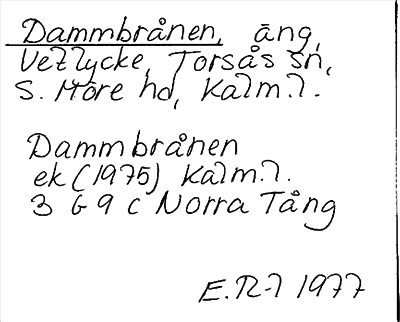 Dammbrånen, äng,
Vezlycke, Torsås sn,
S. Möre hd, Kalm.l.
Dammbrånen
ek (1975) Kalm.l.
3 G 9 c Norra Tång
E.R-l 1977